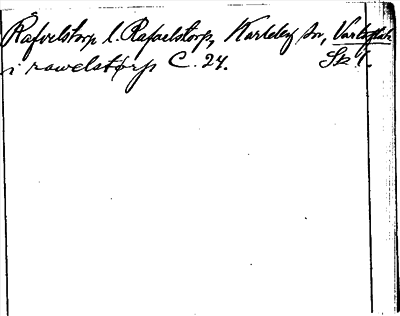 Rafvelstorp l. Rafaelstorp, Karleby sn, Vartofta h
i rawelstorp C. 24. Sk 1.